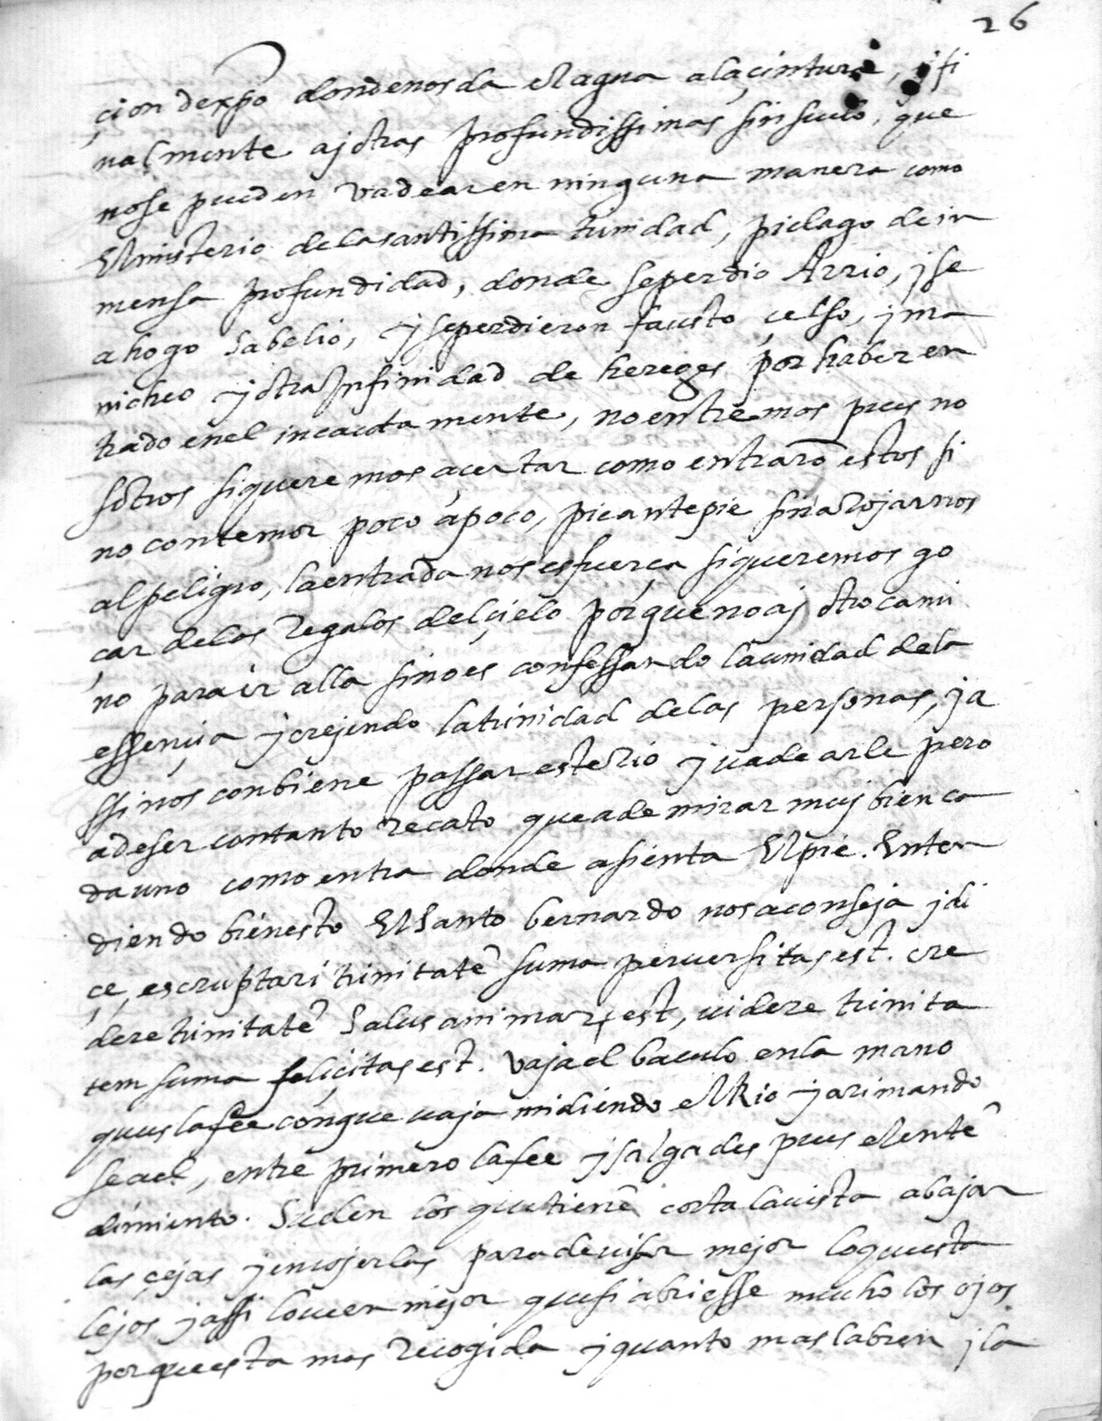 26
çion dexpo donde nos da el agua a la çintura, y fi
nalmente ay otras profundissimas sin suelo, que
no se pueden vadear en ninguna manera como
El misterio de la santissima trinidad, pielago de in
mensa profundidad, donde se perdio Arrio, y se
ahogo Sabelio, y se perdieron fausto çelso, y ma
nicheo y otra Infinidad de hereges por haber en
trado en el incauta mente, no entremos pues no
sotros si queremos açertar como entrarō estos si
no con temor poco a poco, pie ante pie sin arojarnos
al peligro, la entrada nos es fuerça si queremos go
çar de los Regalos del çielo porque no ay otro cami
no para ir alla sino es confessando la unidad de la
essençia y creyendo la trinidad de las personas, y a
ssi nos conbiene passar este Rio y vadearle pero
a de ser con tanto recato que a de mirar muy bien ca
da uno como entra donde asienta El pie. Enten
diendo bien esto El Santo bernardo nos aconseja y di
çe, escruptari trinitatē suma peruersitas est. cre
dere trinitatē Salus animar est, uidere trinita
tem suma feliçitas est. vaya el baculo en la mano
ques la fee con que vaya midiendo el Rio y arimando
se a el, entre primero la fee y salga despues el entē
dimiento. Suelen los que tienē corta la uista abajar
las çejas y encojerlas para deuisar mejor lo questa
lejos y assi lo uen mejor que si abriesse mucho los ojos
porque esta mas recogida y quanto mas la bren y la